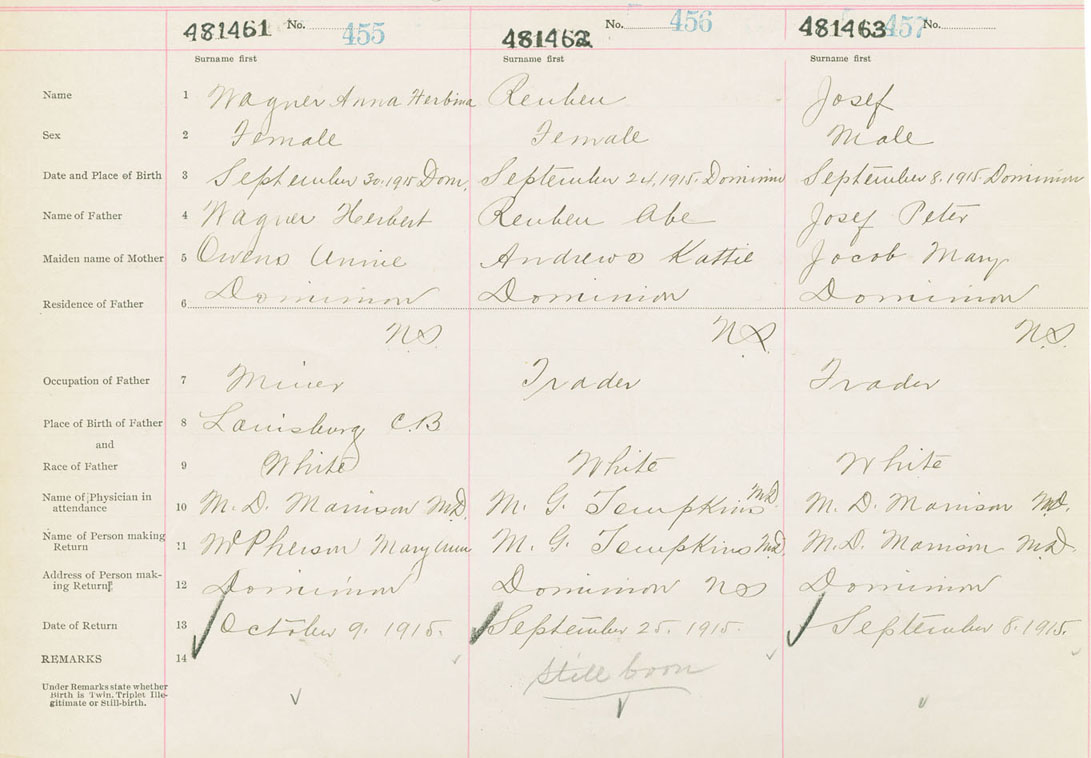 481461 No. 455 481462 No. 456 481463 457 No.
Surname first Surname first Surname first
Name 1 Wagner Anna Herbina Reuben Josef
Sex 2 Female Female Male
Date and Place of Birth 3 September 30. 1915 Dom. September 24, 1915. Dominion September 8. 1915. Dominion
Name of Father 4 Wagner Herbert Reuben Abe Josef Peter
Maiden name of Mother 5 Owens Annie Andrews Kattie Jacob Mary
Residence of Father 6 Dominion Dominion Dominion
N.S. N.S. N.S.
Occupation of Father 7 Miner Trader Trader
Place of Birth of Father 8 Louisburg C.B
and
Race of Father 9 White White White
Name of Physician in
attendance 10 M. D. Morrison M.D. M. G. Tompkins M.D. M. D. Morrison M.D.
Name of Person making
Return 11 McPherson Mary Ann M. G. Tompkins M.D. M. D. Morrison M.D.
Address of Person mak-
ing Return 12 Dominion Dominion N S Dominion
Date of Return 13 October 9. 1915. September 25. 1915. September 8. 1915.
REMARKS 14
still born
Under Remarks state whether
Birth is Twin, Triplet Ille-
gitimate or Still-birth.